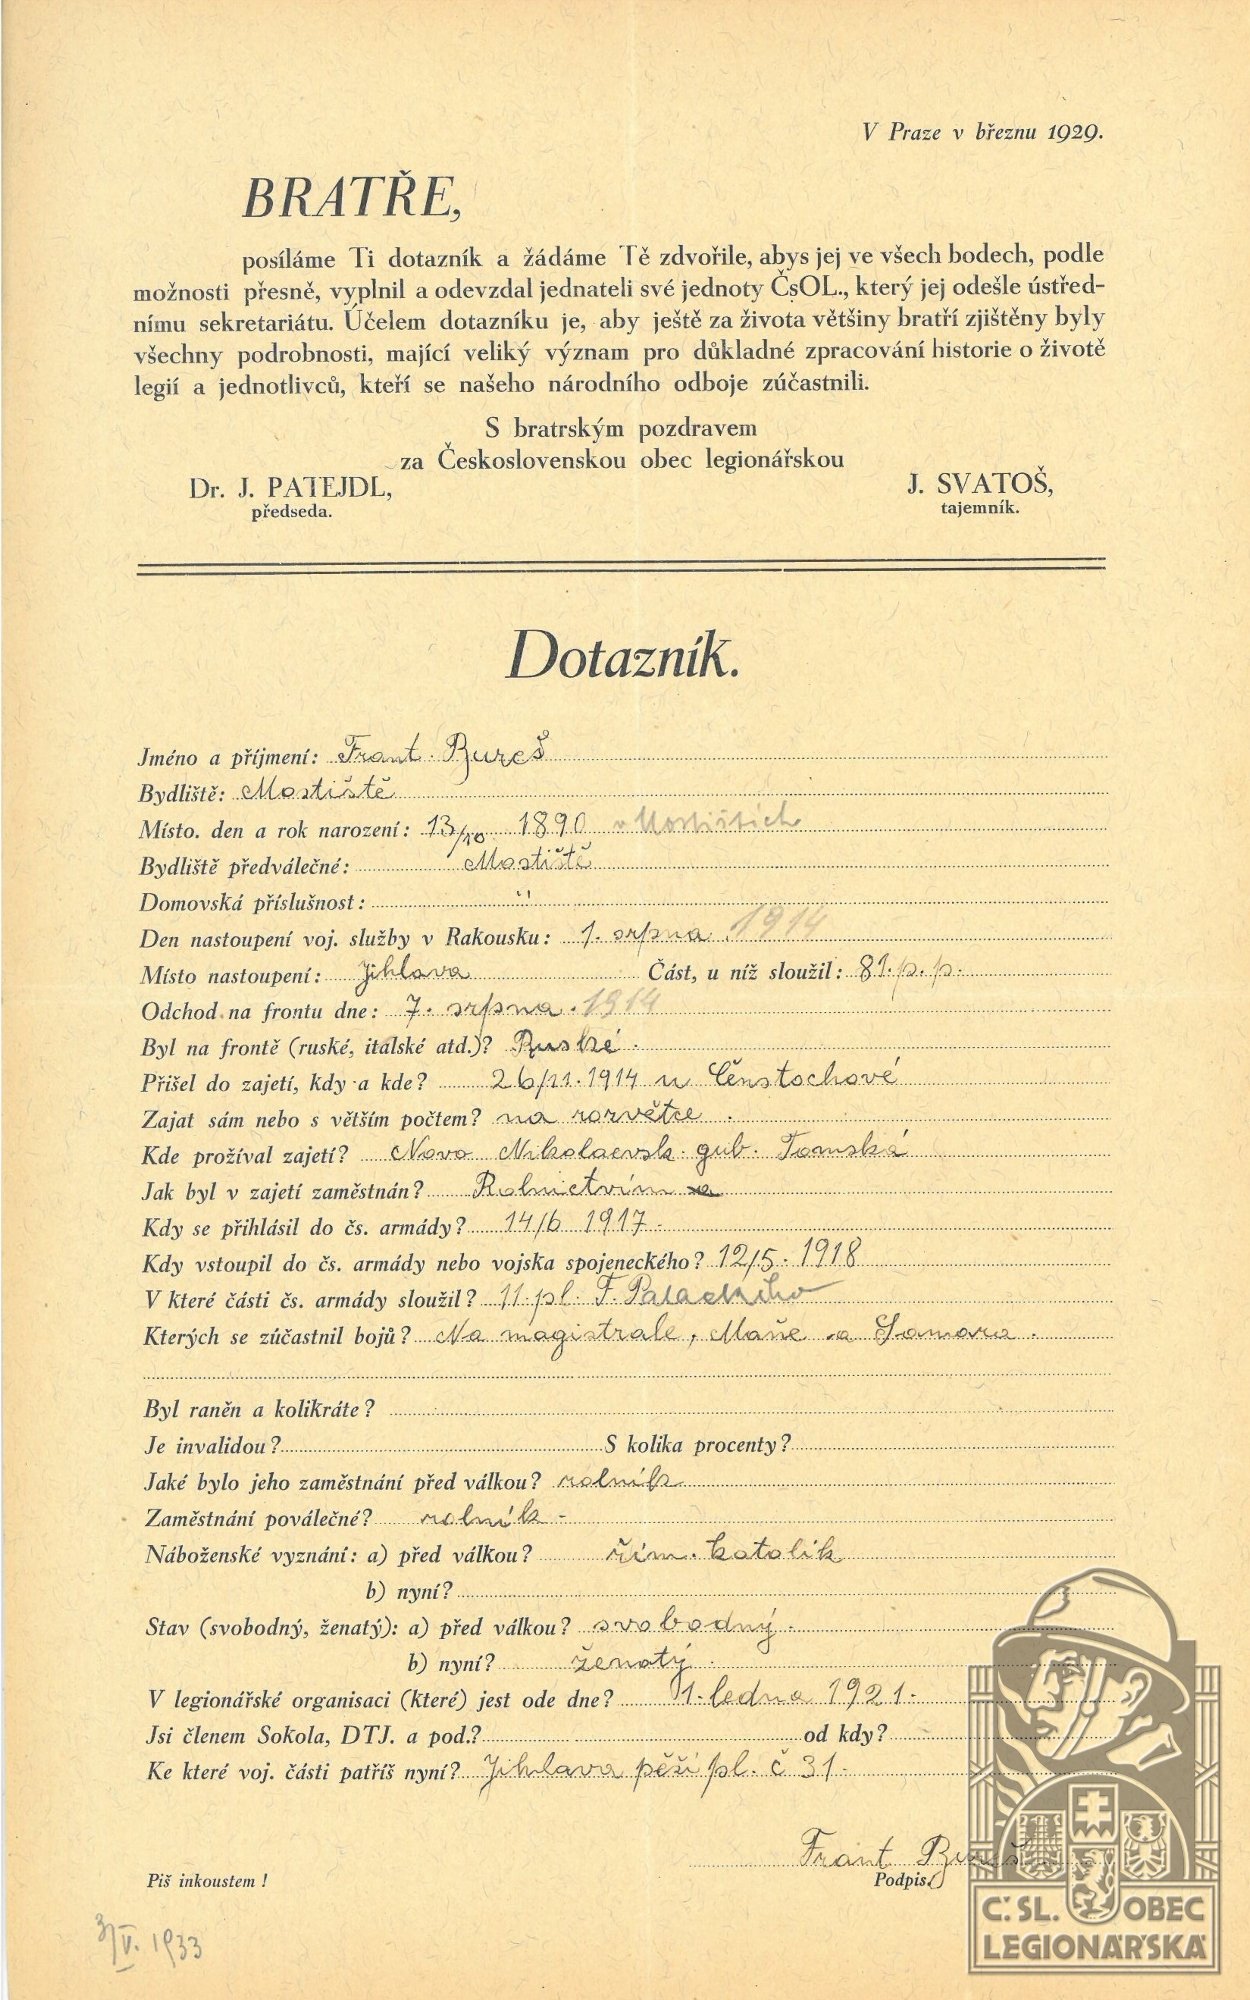 V Praze v březnu 1929.
BRATŘE,
posíláme Ti dotazník a žádáme Tě zdvořile, abys jej ve všech bodech, podle
možnosti přesně, vyplnil a odevzdal jednateli své jednoty ČsOL., který jej odešle ústřed-
nímu sekretariátu. Účelem dotazníku je, aby ještě za života většiny bratří zjištěny byly
všechny podrobnosti, mající veliký význam pro důkladné zpracování historie o životě
legií a jednotlivců, kteří se našeho národního odboje zúčastnili.
S bratrským pozdravem
za Československou obec legionářskou
Dr. J. PATEJDL, J. SVATOŠ,
předseda. tajemník.
Dotazník.
Jméno a příjmení: Frant. Bureš
Bydliště: Mostiště
Místo. den a rok narození: 13/10 1890 v Mostištích
Bydliště předválečné: Mostiště
Domovská příslušnost: "
Den nastoupení voj. služby v Rakousku: 1. srpna 1914
Místo nastoupení: Jihlava Část, u níž sloužil: 81. p. p.
Odchod na frontu dne: 7. srpna. 1914
Byl na frontě (ruské, italské atd.)? Ruské.
Přišel do zajetí, kdy a kde? 26/11. 1914 u Čenstochové
Zajat sám nebo s větším počtem? na rozvětce.
Kde prožíval zajetí? Novo Nikolaevsk. gub. Tomská
Jak byl v zajetí zaměstnán? Rolnictvím
Kdy se přihlásil do čs. armády? 14/6 1917.
Kdy vstoupil do čs. armády nebo vojska spojeneckého? 12/5. 1918
V které části čs. armády sloužil? 11. pl. F. Palackého
Kterých se zúčastnil bojů? Na magistrale, Maňe a Samara.
Byl raněn a kolikráte?
Je invalidou? S kolika procenty?
Jaké bylo jeho zaměstnání před válkou? rolník
Zaměstnání poválečné? rolník -
Náboženské vyznání: a) před válkou? řím. katolík
b) nyní?
Stav (svobodný, ženatý): a) před válkou? svobodný.
b) nyní? ženatý.
V legionářské organisaci (které) jest ode dne? 1. ledna 1921.
Jsi členem Sokola, DTJ. a pod.? od kdy?
Ke které voj. části patříš nyní? Jihlava pěší pl. č 31.
Frant Bureš
Piš inkoustem! Podpis.
3/V. 1933
Č. SL. OBEC
LEGIONÁŘSKÁ